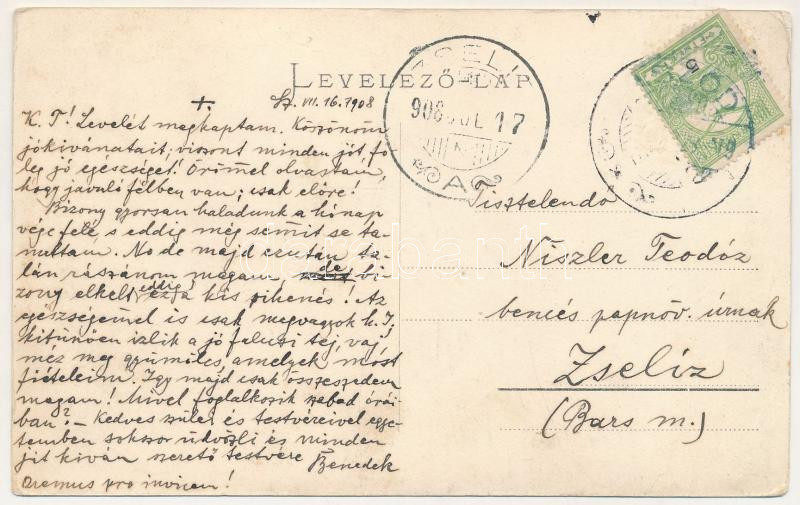 LEVELEZŐ-LAP
+
Sz. VII. 16. 1908
K. T! Levelét megkaptam. Köszönöm
jókivánatait; viszont minden jót, fő-
leg jó egészséget! Örömmel olvastam,
hogy javuló félben van; csak előre!
Bizony gyorsan haladunk a hónap
vége felé s eddig még semit se ta-
nultam. No de majd ezután ta-
lán rászánom magam, de bi-
zony elkelt eddig ez a kis pihenés! Az
egészségemmel is csak megvagyok k. T,
kitünően izlik a jó falusi tej, vaj,
méz meg gyümölcs, amelyek most
ételeim. Igy majd csak összeszedem
magam! Mivel foglalkozik szabad órái-
ban? – Kedves szülei és testvéreivel egye-
temben sokszor üdvözli és minden
jót kiván szerető testvére Benedek
oremus pro invicem!
ZSELIZ
908 JUL 17
A
Tisztelendő
Niszler Teodóz
bencés papnöv. úrnak
Zseliz
(Bars m.)
5